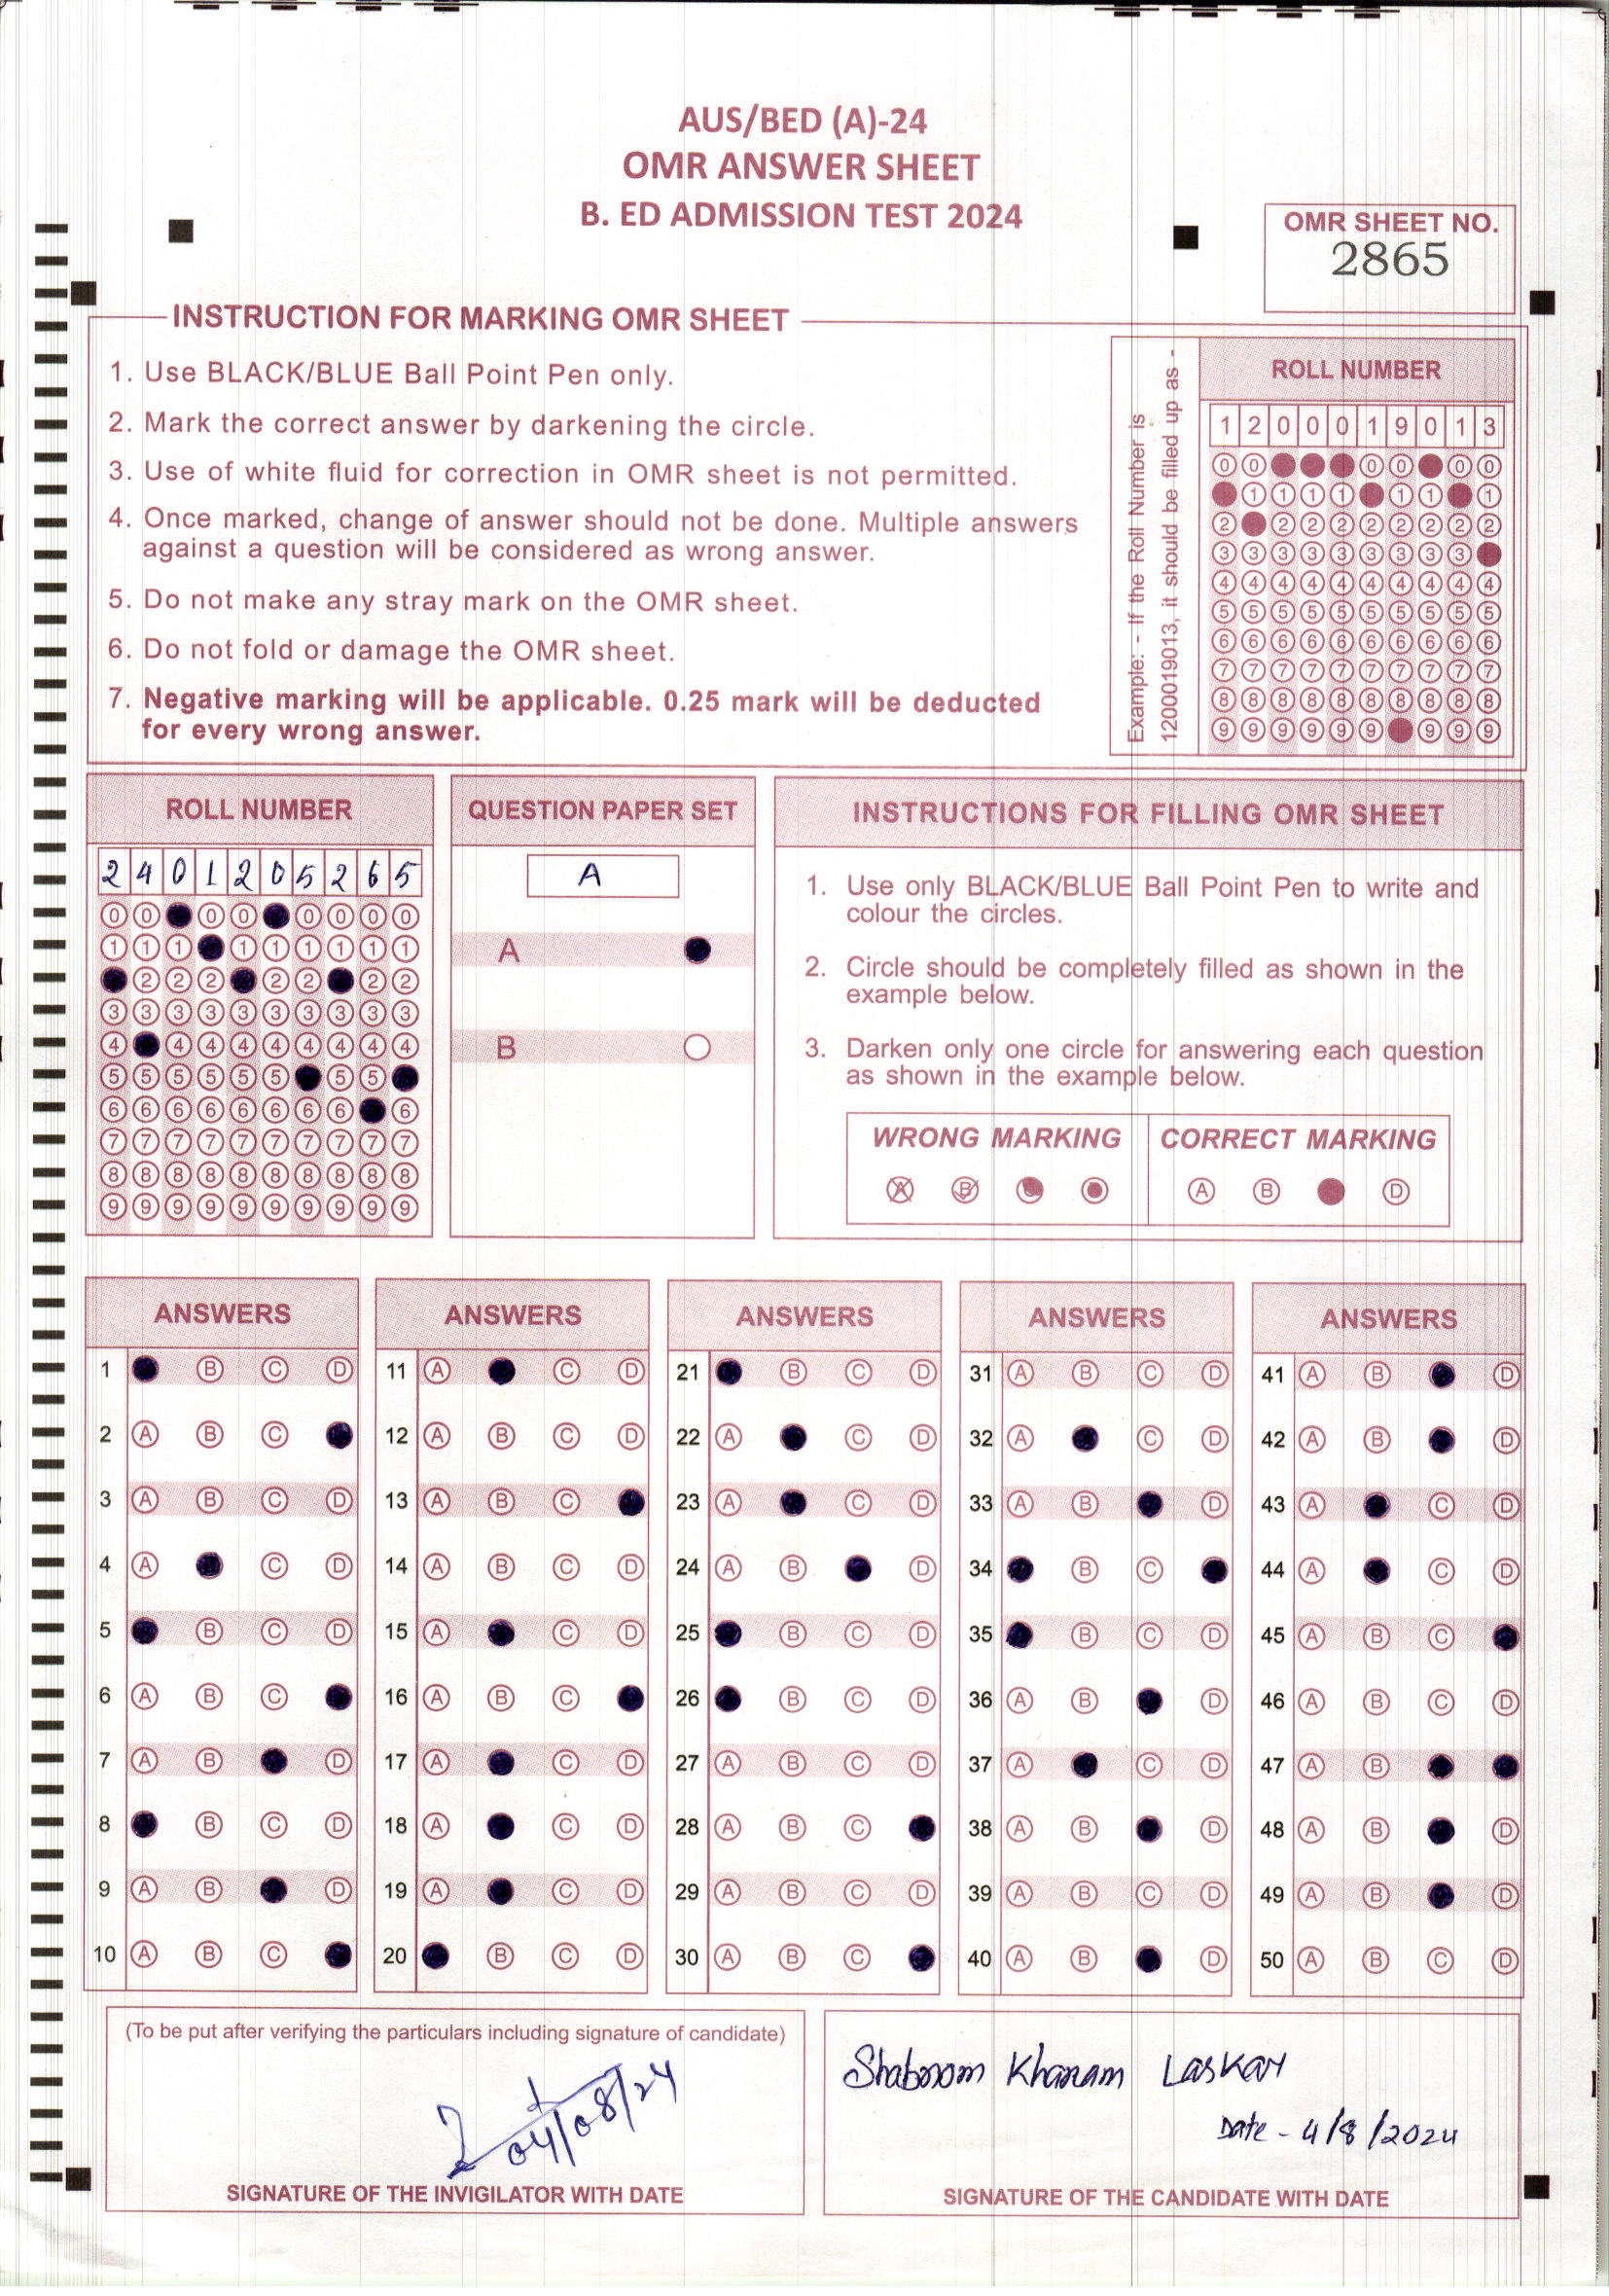 AUS/BED (A)-24
OMR ANSWER SHEET
B. ED ADMISSION TEST 2024
OMR SHEET NO.
2865
INSTRUCTION FOR MARKING OMR SHEET
1. Use BLACK/BLUE Ball Point Pen only.
2. Mark the correct answer by darkening the circle.
3. Use of white fluid for correction in OMR sheet is not permitted.
4. Once marked, change of answer should not be done. Multiple answers
against a question will be considered as wrong answer.
5. Do not make any stray mark on the OMR sheet.
6. Do not fold or damage the OMR sheet.
7. Negative marking will be applicable. 0.25 mark will be deducted
for every wrong answer.
Example: - If the Roll Number is
1200019013, it should be filled up as -
ROLL NUMBER
1 2 0 0 0 1 9 0 1 3
0 0 0 0 0 0
1 1 1 1 1 1 1
2 2 2 2 2 2 2 2 2
3 3 3 3 3 3 3 3 3
4 4 4 4 4 4 4 4 4 4
5 5 5 5 5 5 5 5 5 5
6 6 6 6 6 6 6 6 6 6
7 7 7 7 7 7 7 7 7 7
8 8 8 8 8 8 8 8 8 8
9 9 9 9 9 9 9 9 9
ROLL NUMBER
2 4 0 1 2 0 5 2 6 5
0 0 0 0 0 0 0 0
1 1 1 1 1 1 1 1 1
2 2 2 2 2 2 2
3 3 3 3 3 3 3 3 3 3
4 4 4 4 4 4 4 4 4
5 5 5 5 5 5 5 5
6 6 6 6 6 6 6 6 6
7 7 7 7 7 7 7 7 7 7
8 8 8 8 8 8 8 8 8 8
9 9 9 9 9 9 9 9 9 9
QUESTION PAPER SET
A
A
B
INSTRUCTIONS FOR FILLING OMR SHEET
1. Use only BLACK/BLUE Ball Point Pen to write and
colour the circles.
2. Circle should be completely filled as shown in the
example below.
3. Darken only one circle for answering each question
as shown in the example below.
WRONG MARKING
A B
CORRECT MARKING
A B D
ANSWERS
1 B C D
2 A B C
3 A B C D
4 A C D
5 B C D
6 A B C
7 A B D
8 B C D
9 A B D
10 A B C
ANSWERS
11 A C D
12 A B C D
13 A B C
14 A B C D
15 A C D
16 A B C
17 A C D
18 A C D
19 A C D
20 B C D
ANSWERS
21 B C D
22 A C D
23 A C D
24 A B D
25 B C D
26 B C D
27 A B C D
28 A B C
29 A B C D
30 A B C
ANSWERS
31 A B C D
32 A C D
33 A B D
34 B C
35 B C D
36 A B D
37 A C D
38 A B D
39 A B C D
40 A B D
ANSWERS
41 A B D
42 A B D
43 A C D
44 A C D
45 A B C
46 A B C D
47 A B
48 A B D
49 A B D
50 A B C D
(To be put after verifying the particulars including signature of candidate)
04/08/24
SIGNATURE OF THE INVIGILATOR WITH DATE
Shabnom Khanam Laskar
Date - 4/8/2024
SIGNATURE OF THE CANDIDATE WITH DATE